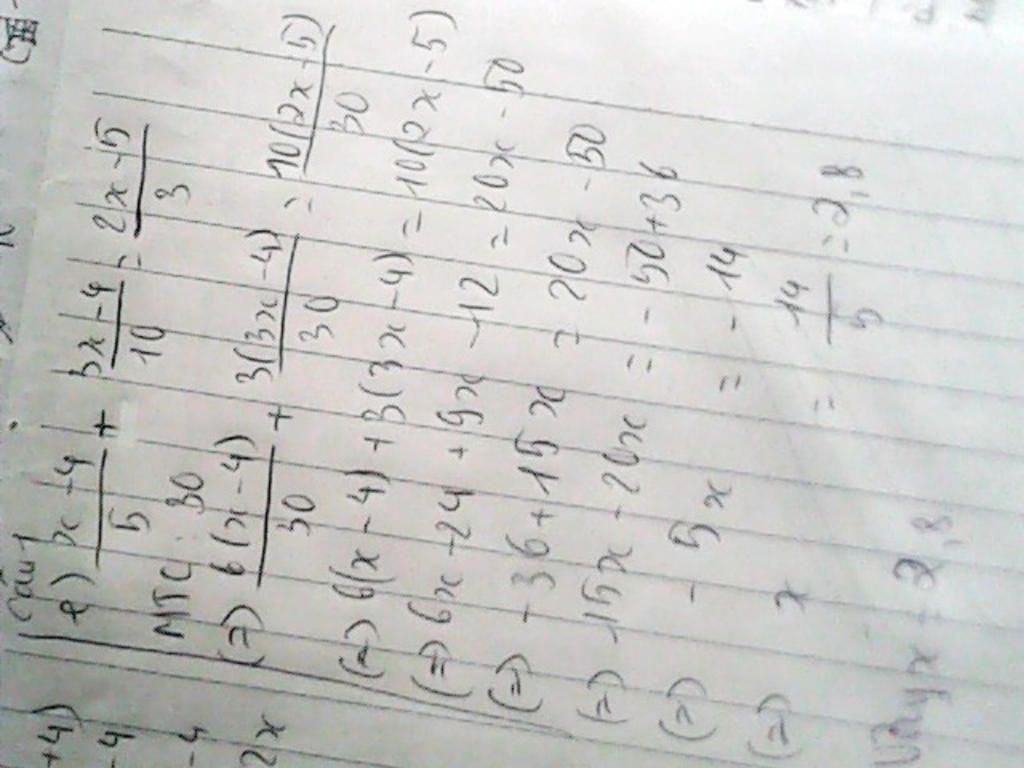 Câu 1
f) \frac{x-4}{5} + \frac{3x-4}{10} = \frac{2x-5}{3}
MTC: 30
(=) \frac{6(x-4)}{30} + \frac{3(3x-4)}{30} = \frac{10(2x-5)}{30}
(=) 6(x-4) + 3(3x-4) = 10(2x-5)
(=) 6x - 24 + 9x - 12 = 20x - 50
(=) - 36 + 15x = 20x - 50
(=) 15x - 20x = - 50 + 36
(=) - 5x = - 14
(=) x = \frac{14}{5} = 2,8
Vậy x = 2,8
+4)
- 4
- 4
2x